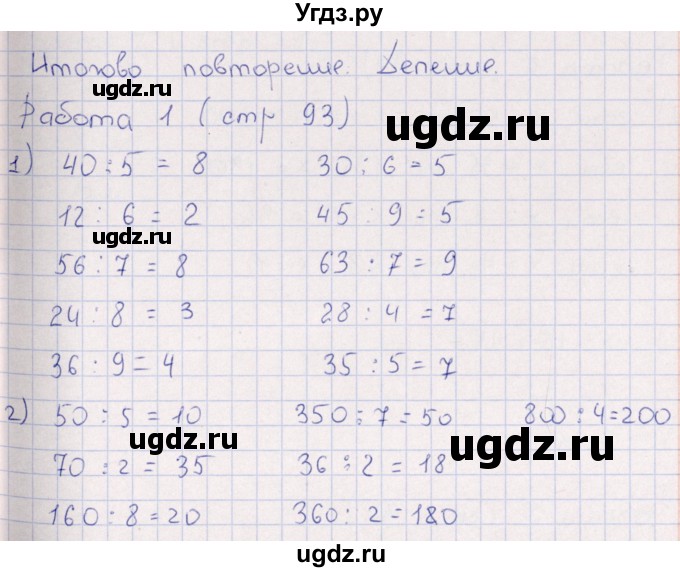 Угдз.ру
Итогово повторение. Деление.
ugdz.ru
Работа 1 (стр 93)
ugdz.ru
1) 40 : 5 = 8 30 : 6 = 5
12 : 6 = 2 45 : 9 = 5
ugdz.ru
56 : 7 = 8 63 : 7 = 9
24 : 8 = 3 28 : 4 = 7
36 : 9 = 4 35 : 5 = 7
2) 50 : 5 = 10 350 : 7 = 50 800 : 4 = 200
ugdz.ru ugdz.ru
70 : 2 = 35 36 : 2 = 18
160 : 8 = 20 360 : 2 = 180
ugdz.ru